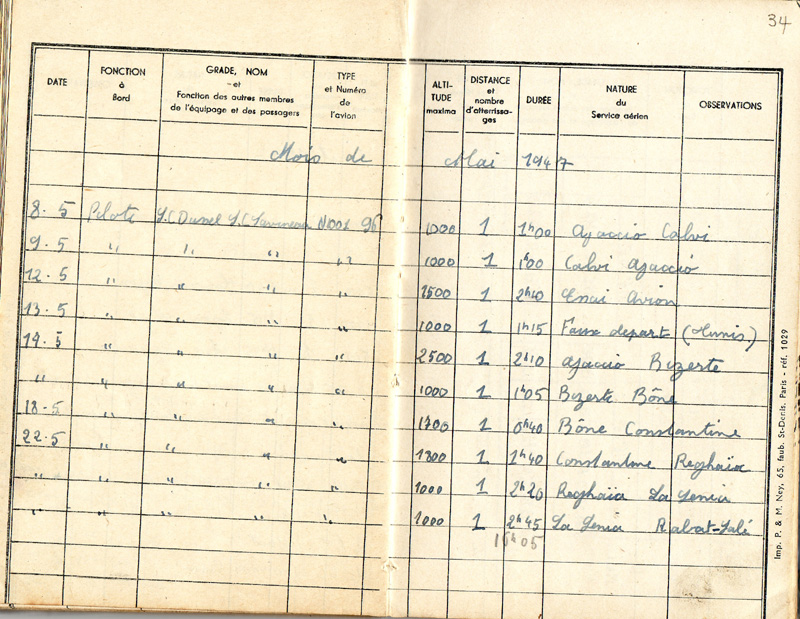 34
DATE FONCTION à Bord GRADE, NOM et Fonction des autres membres de l'équipage et des passagers TYPE et Numéro de l'avion ALTI-TUDE maxima DISTANCE et nombre d'atterrissa-ges DURÉE NATURE du Service aérien OBSERVATIONS
Mois de Mai 1947
8.5 Pilote 96 1000 1 1h00 Ajaccio Calvi
9.5 " " " " 1000 1 1h00 Calvi Ajaccio
12.5 " " " " 1 2h40 Essai Avion
13.5 " " " " 1000 1 1h15 Faux depart (Tunis)
" " " " 2500 1 2h10 Ajaccio Bizerte
" " " " " 1000 1 1h05 Bizerte Bône
18.5 " " " " 1 0h40 Bône Constantine
22.5 " " " " 1 1h40 Constantine Reghaïa
" " " " " 1000 1 2h20 Reghaïa La Senia
" " " " " 1000 1 2h45 La Senia Rabat-Salé
Imp. P. & M. Ney, 65, faub. St-Denis, Paris - réf. 1029